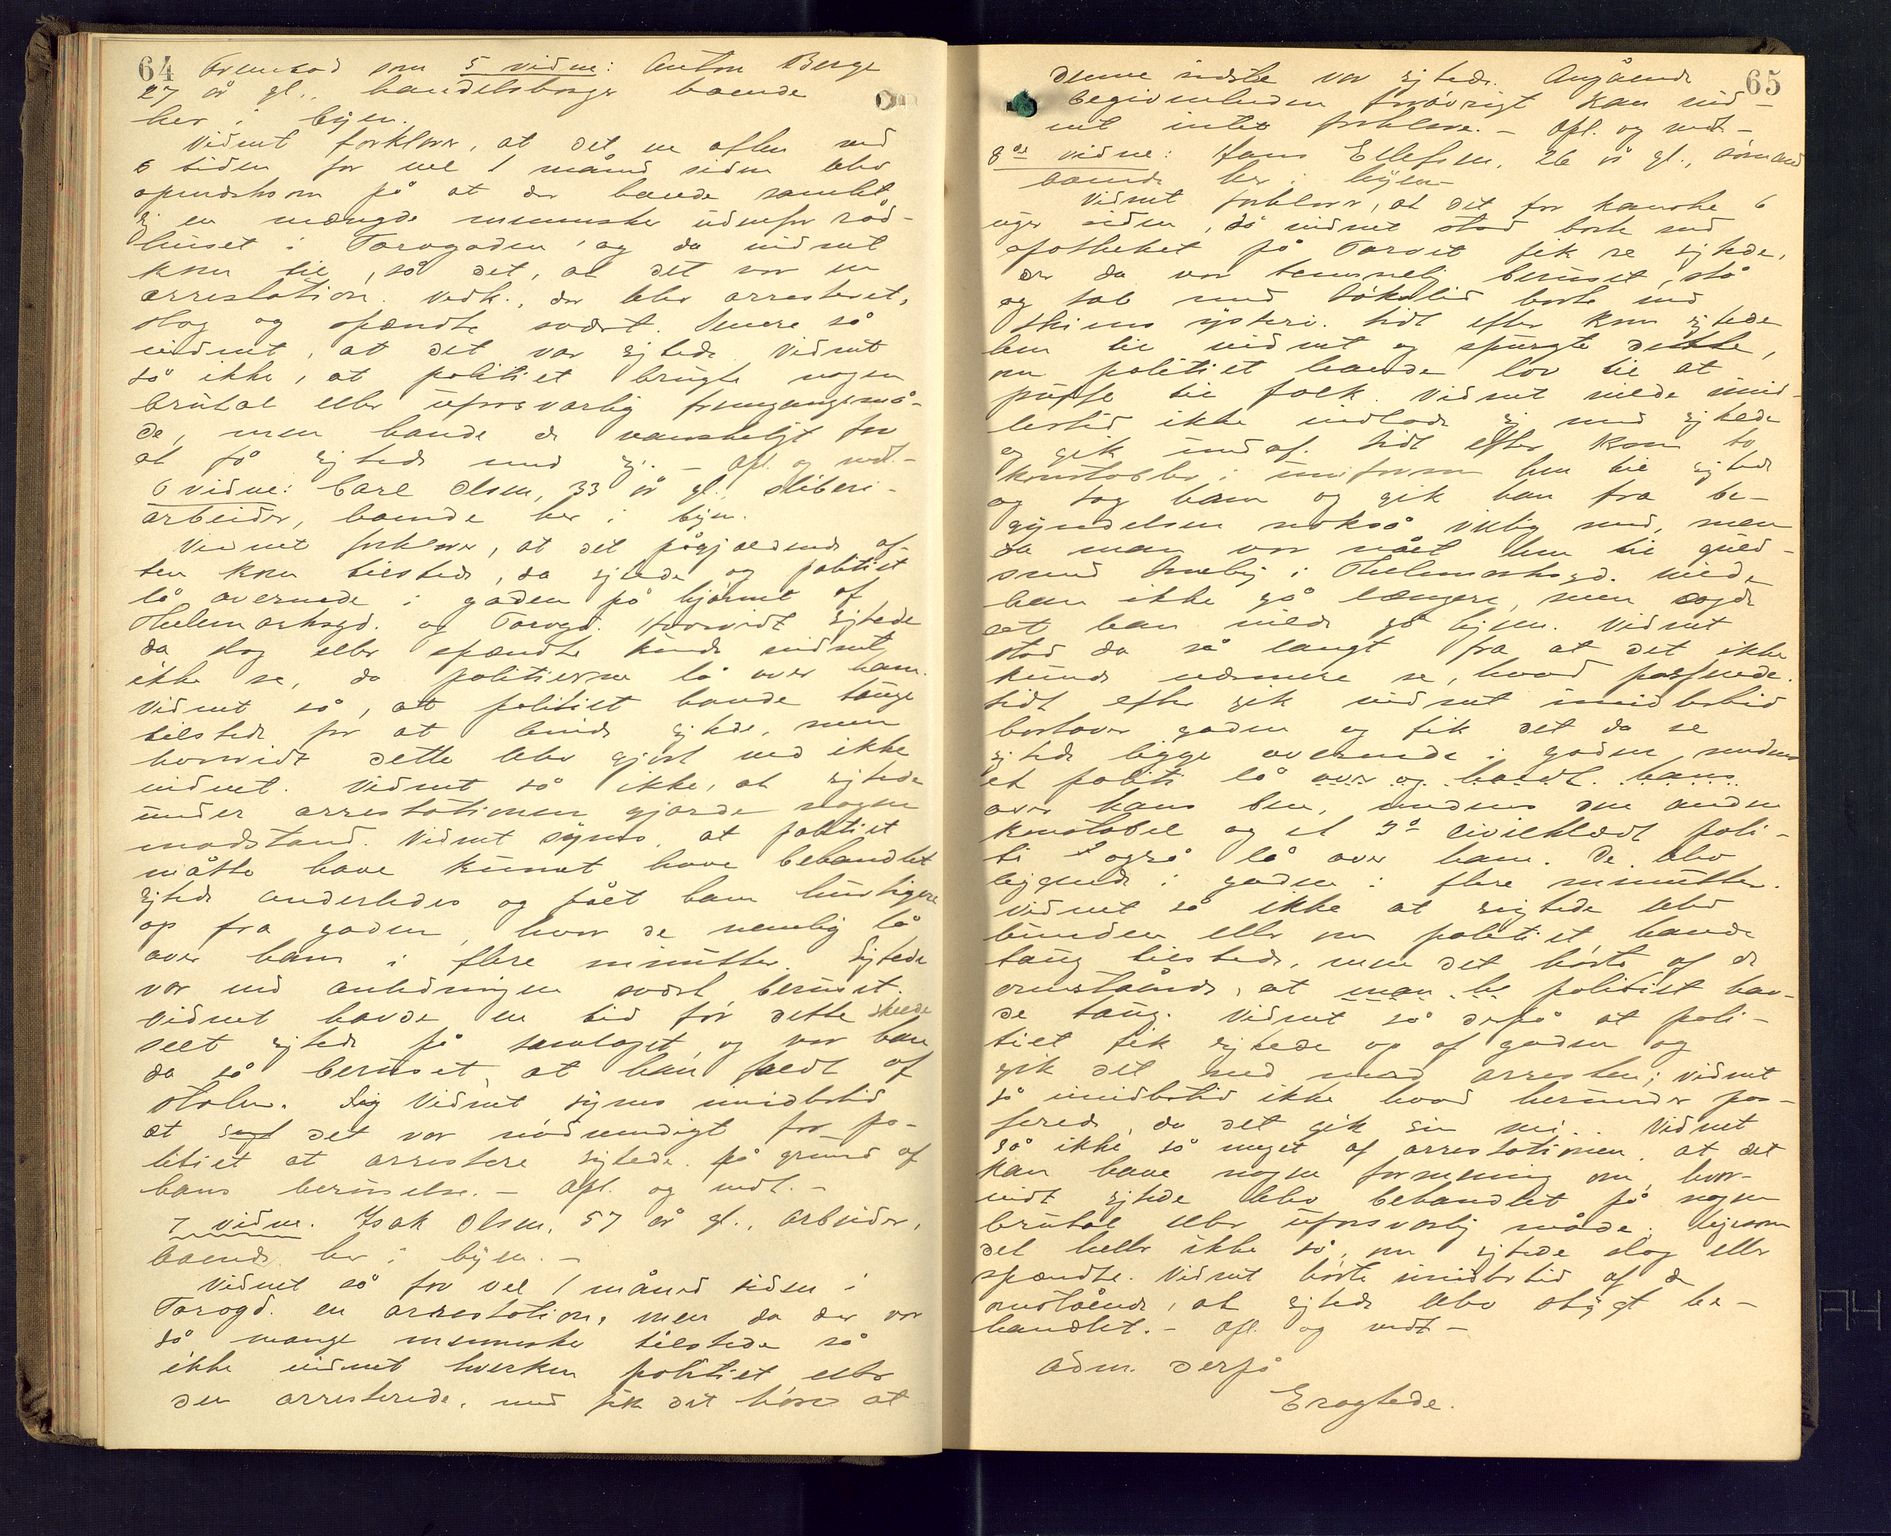 64 Fremstod som 5 vidne: Anton Berge
27 år gl., handelsborger boende
her i byen.
Vidnet forklarer, at det en aften ved
6 tiden for vel 1 måned siden blev
opmerksom på at der havde samlet
sig en mængde menneske udenfor råd-
huset i Torvgaden, og da vidnet
kom til, så det, at det var en
arrestation. Vedk., der blev arresteret,
slog og spændte svært. Senere så
vidnet, at det var sigtede. Vidnet
så ikke, at politiet brugte nogen
brutal eller uforsvarlig fremgangsmå-
de, men havde de vanskeligt for
at få sigtede med sig. – Opl. og vedt. –
6 vidne: Carl Olsen, 33 år gl., sliberi-
arbeider, boende her i byen.
Vidnet forklarer, at det pågjældende af-
ten kom tilstede, da sigtede og politiet
lå overende i gaden på hjørnet af
Thelemarksgd. og Torvgd. Hvorvidt sigtede
da slog eller spændte kunde vidnet
ikke se, da politierne lå over ham.
Vidnet så, at politiet havde tauge
tilstede for at binde sigtede, men
hvorvidt dette blev gjort ved ikke
vidnet. Vidnet så ikke, at sigtede
under arrestationen gjorde nogen
modstand. Vidnet synes, at politiet
måtte have kunnet have behandlet
sigtede anderledes og fået ham hurtigere
op fra gaden, hvor de nemlig lå
over ham i flere minutter. Sigtede
var ved anledningen svært beruset.
Vidnet havde en tid før dette skede
seet sigtede på samlaget, og var han
da så beruset, at han faldt af
stolen. Vidnet synes imidlertid
at det var nødvendigt for po-
litiet at arrestere sigtede på grund af
hans beruselse. – Opl. og vedt. –
7 vidne. Isak Olsen, 57 år gl., arbeider,
boende her i byen. –
Vidnet så for vel 1 måned siden i
Torvgd. en arrestation, men da der var
så mange menneske tilstede så
ikke vidnet hverken politiet eller
den arresterede, med fik det høre at
65
denne sidste var sigtede. Angående
begivenheden forøvrigt kan vid-
net intet forklare. – Opl. og vedt –
8de vidne: Hans Ellefsen, 26 år gl., sømand
boende her i byen –
Vidnet forklarer, at det for kanske 6
uger siden, då vidnet stod borte ved
apotheket på Torvet fik se sigtede,
der da var temmelig beruset, stå
og tale med borte ved
Skiens ysteri. Lidt efter kom sigtede
hen til vidnet og spurgte dette,
om politiet havde lov til at
puffe til folk. Vidnet vilde imid-
lertid ikke indlade sig med sigtede
og gik indaf. Lidt efter kom to
konstabler i uniform hen til sigtede
og tog ham og gik han fra be-
gyndelsen nokså villig med, men
da man var nået hen til guld-
smed i Thelemarksgd. vilde
han ikke gå længere, men sagde
at han vilde gå hjem. Vidnet
stod da så langt fra at det ikke
kunde nærmere se, hvad passerede.
Lidt efter gik vidnet imidlertid
bortover gaden og fik det da se
sigtede ligge overende i gaden medens
et politi lå over og holdt hans
over hans ben, medens den anden
konstabel og et 3de civilklædt poli-
ti også lå over ham. De blev
liggende i gaden i flere minutter.
Vidnet så ikke at sigtede blev
bunden eller om politiet havde
taug tilstede, men det hørte af de
omstående, at man be politiet hav-
de taug. Vidnet så derpå at poli-
tiet fik sigtede op af gaden og
gik det ned mod arresten; vidnet
så imidlertid ikke hvad herunder pas-
serede, da det gik sin vei. Vidnet
så ikke så meget af arrestationen, at det
kan have nogen formening om, hvor-
vidt sigtede blev behandlet på nogen
brutal eller uforsvarlig måde, ligesom
det heller ikke så, om sigtede slog eller
spændte. Vidnet hørte imidlertid af de
omstående, at sigtede blev stygt be-
handlet. – Opl. og vedt –
Adm. derpå
Eragtede.